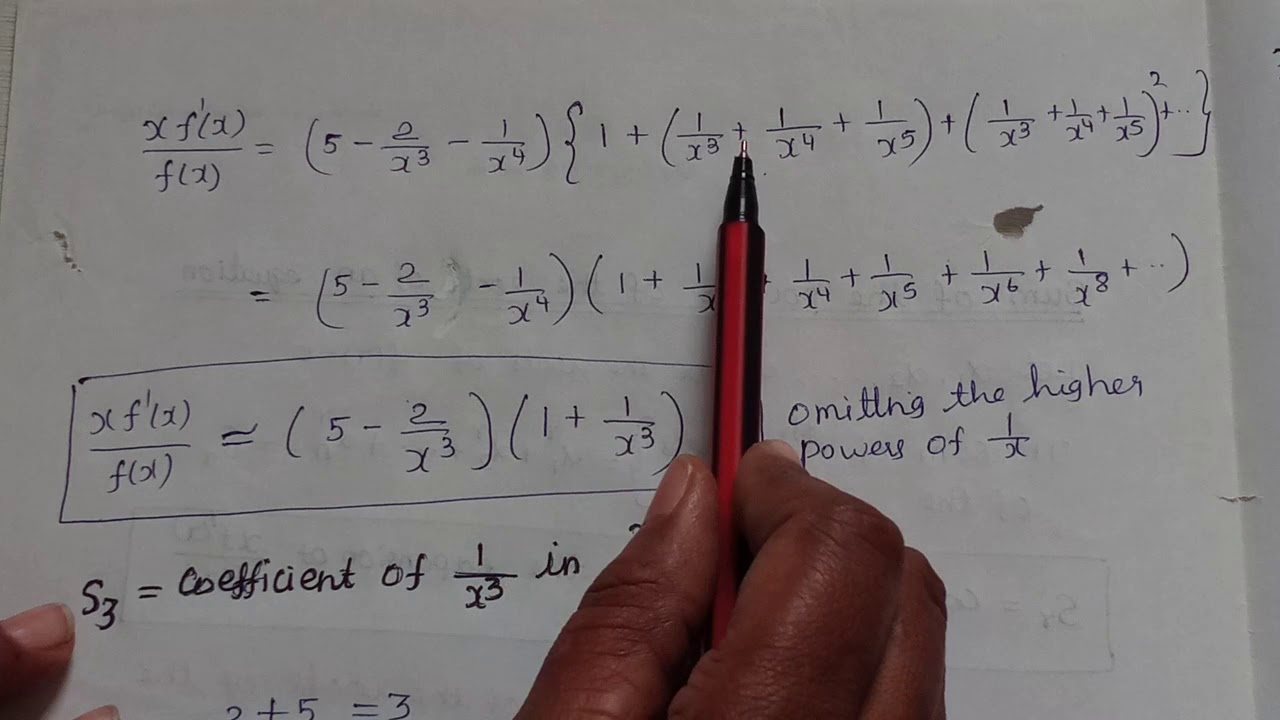 xf'(x)/f(x) = (5 - 2/x³ - 1/x⁴) { 1 + (1/x³ + 1/x⁴ + 1/x⁵) + (1/x³ + 1/x⁴ + 1/x⁵)² + ·· }
= (5 - 2/x³ - 1/x⁴) (1 + 1/x + 1/x⁴ + 1/x⁵ + 1/x⁶ + 1/x⁸ + ··)
xf'(x)/f(x) ≃ (5 - 2/x³) (1 + 1/x³) omitting the higher
powers of 1/x
S₃ = coefficient of 1/x³ in
2 + 5 = 3